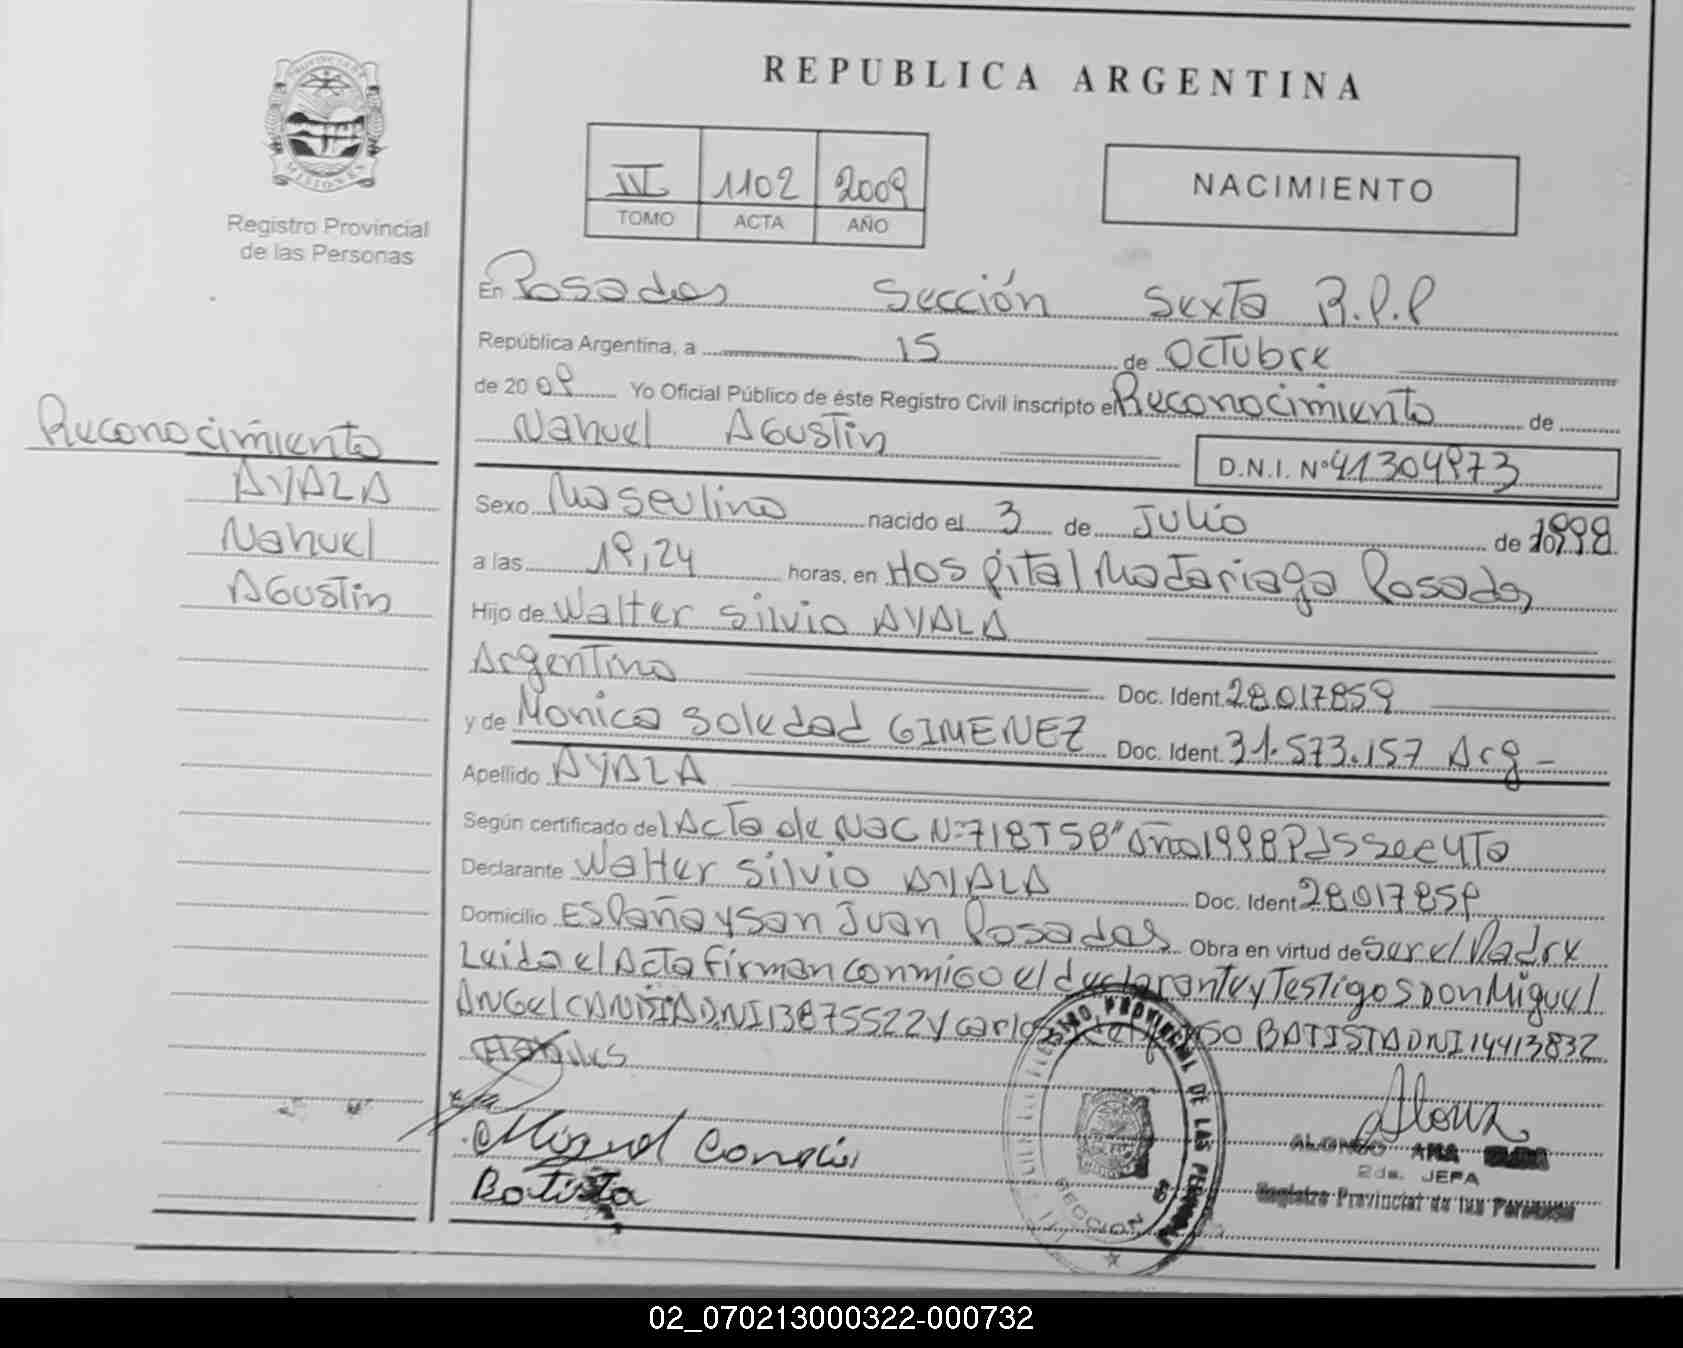 PROVINCIA DE
MISIONES
Registro Provincial
de las Personas
REPUBLICA ARGENTINA
III 1102 2009
TOMO ACTA AÑO
NACIMIENTO
En Posadas Sección Sexta R.P.P
República Argentina, a 15 de Octubre
de 2009 Yo Oficial Público de éste Registro Civil inscripto el Reconocimiento de
Nahuel Agustin
D.N.I. Nº 41304973
Reconocimiento
AYALA
Nahuel
Agustin
Sexo Masculino nacido el 3 de Julio de 1998
a las 19,24 horas, en Hospital Madariaga Posadas
Hijo de Walter Silvio AYALA
Argentino Doc. Ident. 28.017859
y de Monica Soledad GIMENEZ Doc. Ident. 31.573.157 Arg -
Apellido AYALA
Según certificado del Acta de Nac Nº 718 T5B" Año 1998 Pds Sec 4Ta
Declarante Walter Silvio AYALA Doc. Ident 28017859
Domicilio España y San Juan Posadas Obra en virtud de Ser el Padre
Leida el Acta Firman conmigo el declarante y Testigos Don Miguel
Angel CANDIA DNI 13875522 y Carlos BATISTA DNI 14413832
Habiles
Miguel
Batista
REGISTRO PROVINCIAL DE LAS PERSONAS
SECCION
ALONSO ANA
2da. JEFA
Registro Provincial de las Personas
02_070213000322-000732